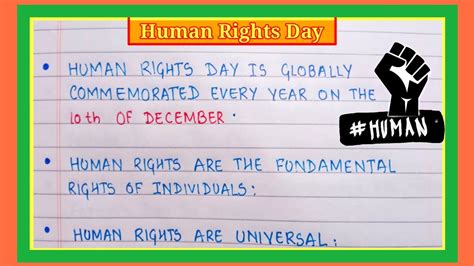 Human Rights Day
• HUMAN RIGHTS DAY IS GLOBALLY
COMMEMORATED EVERY YEAR ON THE
10th OF DECEMBER.
#HUMAN
• HUMAN RIGHTS ARE THE FUNDAMENTAL
RIGHTS OF INDIVIDUALS;
• HUMAN RIGHTS ARE UNIVERSAL;